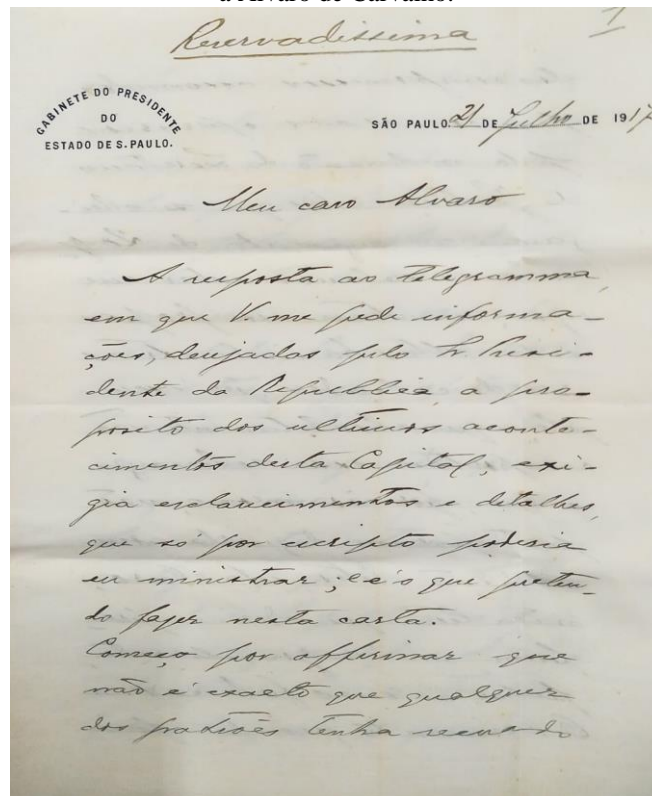 a Álvaro de Carvalho.
Reservadissima
1
GABINETE DO PRESIDENTE
DO
ESTADO DE S. PAULO.
SÃO PAULO 21 DE Julho DE 1917
Meu caro Alvaro
A resposta ao telegramma,
em que V. me pede informa-
ções, desejadas pelo Sr. Presi-
dente da Republica, a pro-
posito dos ultimos aconte-
cimentos desta Capital, exi-
gia esclarecimentos e detalhes,
que só por escripto poderia
eu ministrar; e é o que preten-
do fazer nesta carta.
Começo por affirmar que
não é exacto que qualquer
dos patrões tenha recuado